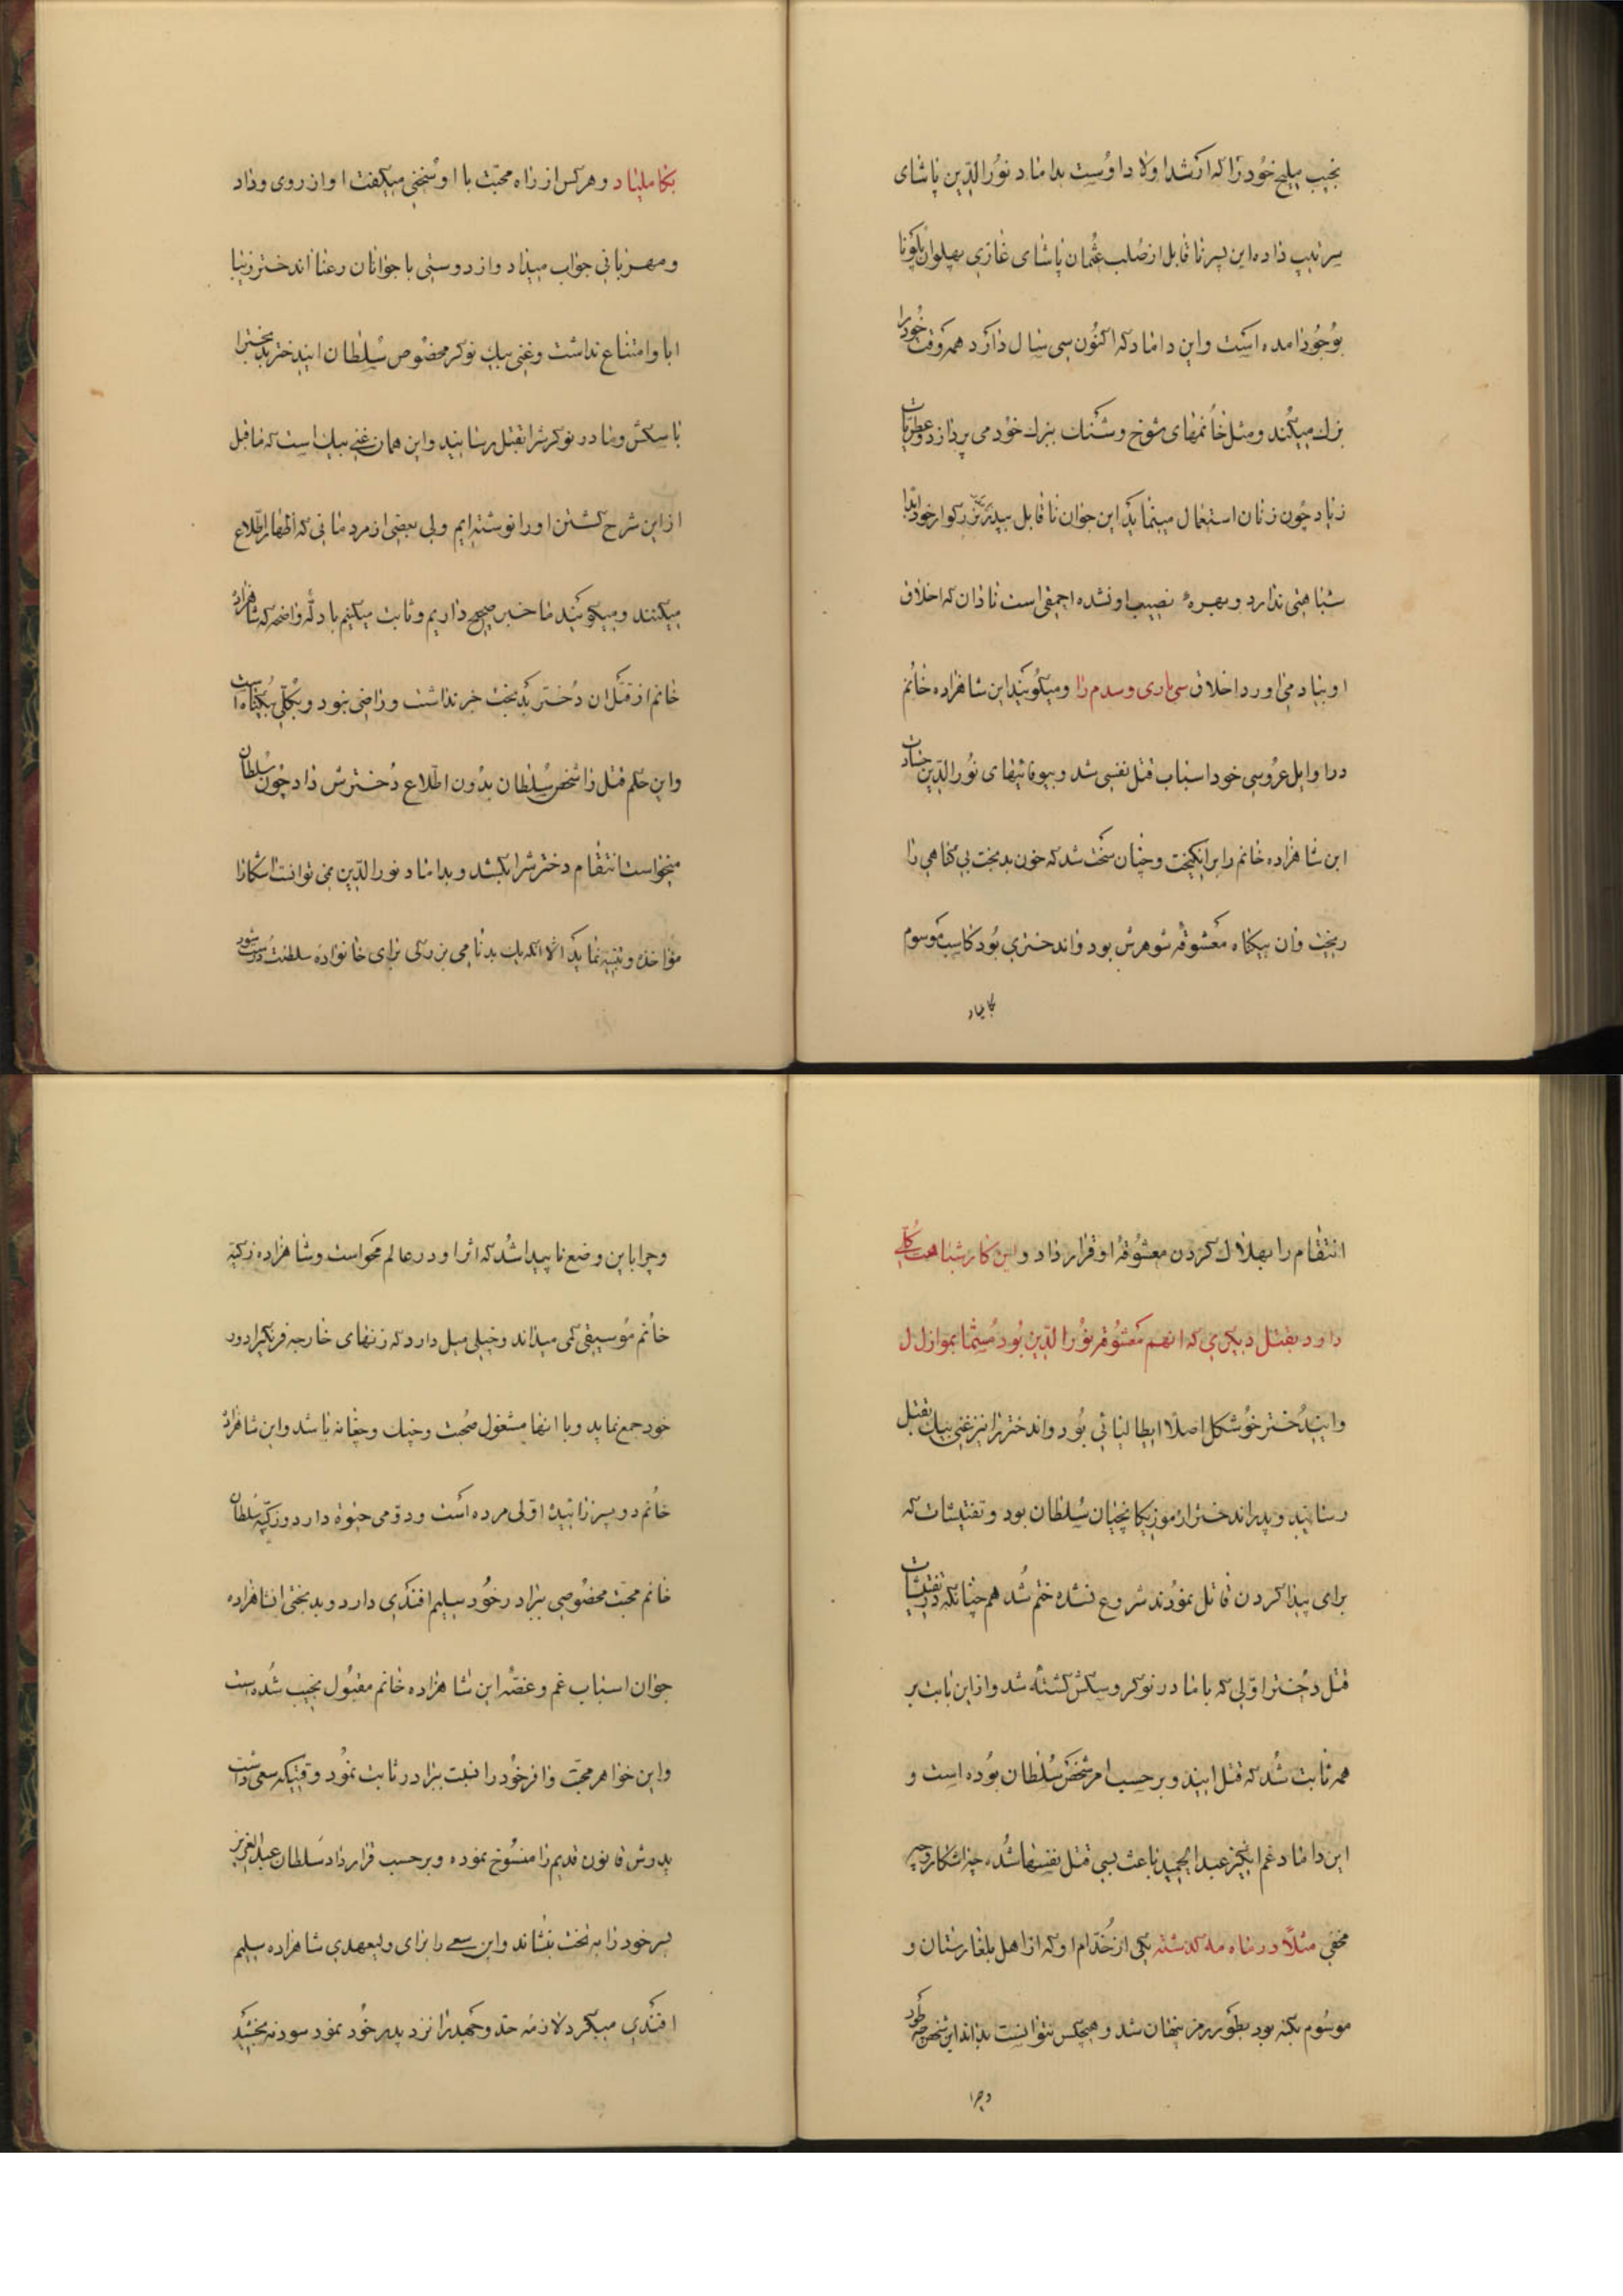 نجیب ملیح خود را که ارشد اولاد اوست بداماد نورالدین پاشای
سرتیپ داده این پسر ناقابل از صلب عثمان پاشای غازی پهلوان پلونا
بوجود امده است و این داماد که اکنون سی سال دارد همه وقت خود را
بزک میکند و مثل خانمهای شوخ و شنک ببزک خود می پردازد و عطریات
زیاد چون زنان استعمال مینماید این جوان ناقابل بپدر بزرکوار خود ابدا
شباهتی ندارد و بهره نصیب او نشده احمقی است نادان که اخلاق
او بیاد می اورد اخلاق را و میکویند این شاهزاده خانم
در اوایل عروسی خود اسباب قتل نفسی شد و بیوفائیهای نورالدین
این شاهزاده خانم را برانکیخت و چنان سخت شد که خون بدبخت بی کناهی را
ریخت و ان بیکناه معشوقه شوهرش بود و اندختری بود موسوم
بکاملیاد
بکاملیاد و هر کس از راه محبت با او سخنی میکفت او از روی وداد
و مهربانی جواب میداد و از دوستی با جوانان رعنا اندختر زیبا
ابا و امتناع نداشت و غنی بیک نوکر مخصوص سلطان ایندختر بدبخترا
با سکش و مادر نوکرش را بقتل رسانید و این همان غنی بیک است که ماقبل
از این شرح کشتن او را نوشته ایم ولی بعضی از مردمانی که اظهار اطلاع
میکنند و میکویند ما خبر صحیح داریم و ثابت میکنیم با دله واضحه که شاهزاده
خانم از قتل ان دختر بدبخت خبر نداشت و راضی نبود و بکلی بیکناه است
و این حکم قتل را شخص سلطان بدون اطلاع دخترش داد چون سلطان
میخواست انتقام دخترش را بکشد و بداماد نورالدین نمی توانست اشکارا
مواخذه و تنبیه نماید الا انکه یک بدنامی بزرکی برای خانواده سلطنت شود
انتقام را بهلاک کردن معشوقه او قرار داد و این کار شباهت کلی
دارد بقتل دیکری که انهم معشوقه نورالدین بود
و ایندختر خوشکل اصلا ایطالیائی بود و اندختر را نیز غنی بیک بقتل
رسانید و پدر اندختر از موزیکانچیان سلطان بود و تفتیشات که
برای پیدا کردن قاتل نمودند شروع نشده ختم شد هم چنانکه در تفتیشات
قتل دختر اولی که با مادر نوکر و سکش کشته شد و از این بابت بر
همه ثابت شد که قتل ایندو بر حسب امر شخص سلطان بوده است و
این داماد غم انکیز عبدالحمید باعث بسی قتل نفسها شد چه اشکار و چه
مخفی مثلا در ماه مه کذشته یکی از خدام او که از اهل بلغارستان و
موسوم بکنه بود بطور رمز پنهان شد و هیچکس نتوانست بداند این شخص چه طور
و چرا
و چرا باین وضع ناپیدا شد که اثر او در عالم محو است و شاهزاده زکیه
خانم موسیقی کمی میداند و خیلی میل دارد که زنهای خارجه فرنکیرا دور
خود جمع نماید و با انها مشغول صحبت و چنک و چغانه باشد و این شاهزاده
خانم دو پسر زائیده اولی مرده است و دومی حیوة دارد و زکیه سلطان
خانم محبت مخصوصی ببرادر خود سلیم افندی دارد و بدبختی انشاهزاده
جوان اسباب غم و غصه این شاهزاده خانم مقبول نجیب شده است
و این خواهر محبت وافر خود را نسبت ببرادر ثابت نمود وقتیکه سعی داشت
پدرش قانون قدیم را منسوخ نموده و بر حسب قرارداد سلطان عبدالعزیز
پسر خود را به تخت بنشاند و این سعی را برای ولیعهدی شاهزاده سلیم
افندی میکرد لازمه جد و جهد را نزد پدر خود نمود سود نه بخشید